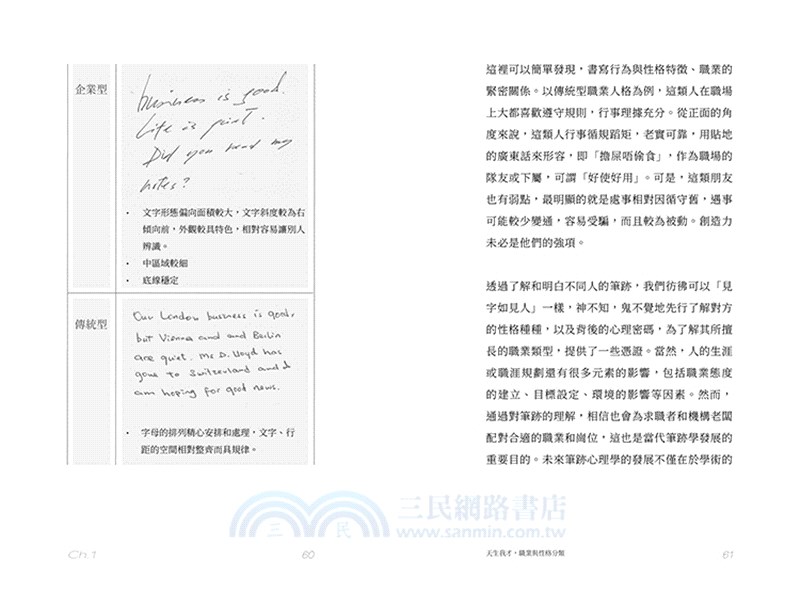 企業型
business is good.
Life is quiet.
Did you read my
notes?
• 文字形態偏向面積較大，文字斜度較為右
傾向前，外觀較具特色，相對容易讓別人
辨識。
• 中區域較細
• 底線穩定
傳統型
Our London business is good,
but Vienna and and Berlin
are quiet. Mr D. Lloyd has
gone to Switzerland and
am hoping for good news.
• 字母的排列精心安排和處理，文字、行
距的空間相對整齊而具規律。
Ch 1
60
這裡可以簡單發現，書寫行為與性格特徵、職業的
緊密關係。以傳統型職業人格為例，這類人在職場
上大都喜歡遵守規則，行事理據充分。從正面的角
度來說，這類人行事循規蹈矩，老實可靠，用貼地
的廣東話來形容，即「擔屎唔偷食」，作為職場的
隊友或下屬，可謂「好使好用」。可是，這類朋友
也有弱點，最明顯的就是處事相對因循守舊，遇事
可能較少變通，容易受騙，而且較為被動。創造力
未必是他們的強項。
透過了解和明白不同人的筆跡，我們彷彿可以「見
字如見人」一樣，神不知，鬼不覺地先行了解對方
的性格種種，以及背後的心理密碼，為了解其所擅
長的職業類型，提供了一些憑證。當然，人的生涯
或職涯規劃還有很多元素的影響，包括職業態度
的建立、目標設定、環境的影響等因素。然而，
通過對筆跡的理解，相信也會為求職者和機構老闆
配對合適的職業和崗位，這也是當代筆跡學發展的
重要目的。未來筆跡心理學的發展不僅在於學術的
天生我才，職業與性格分類
61
三民
三民網路書店
www.sanmin.com.tw